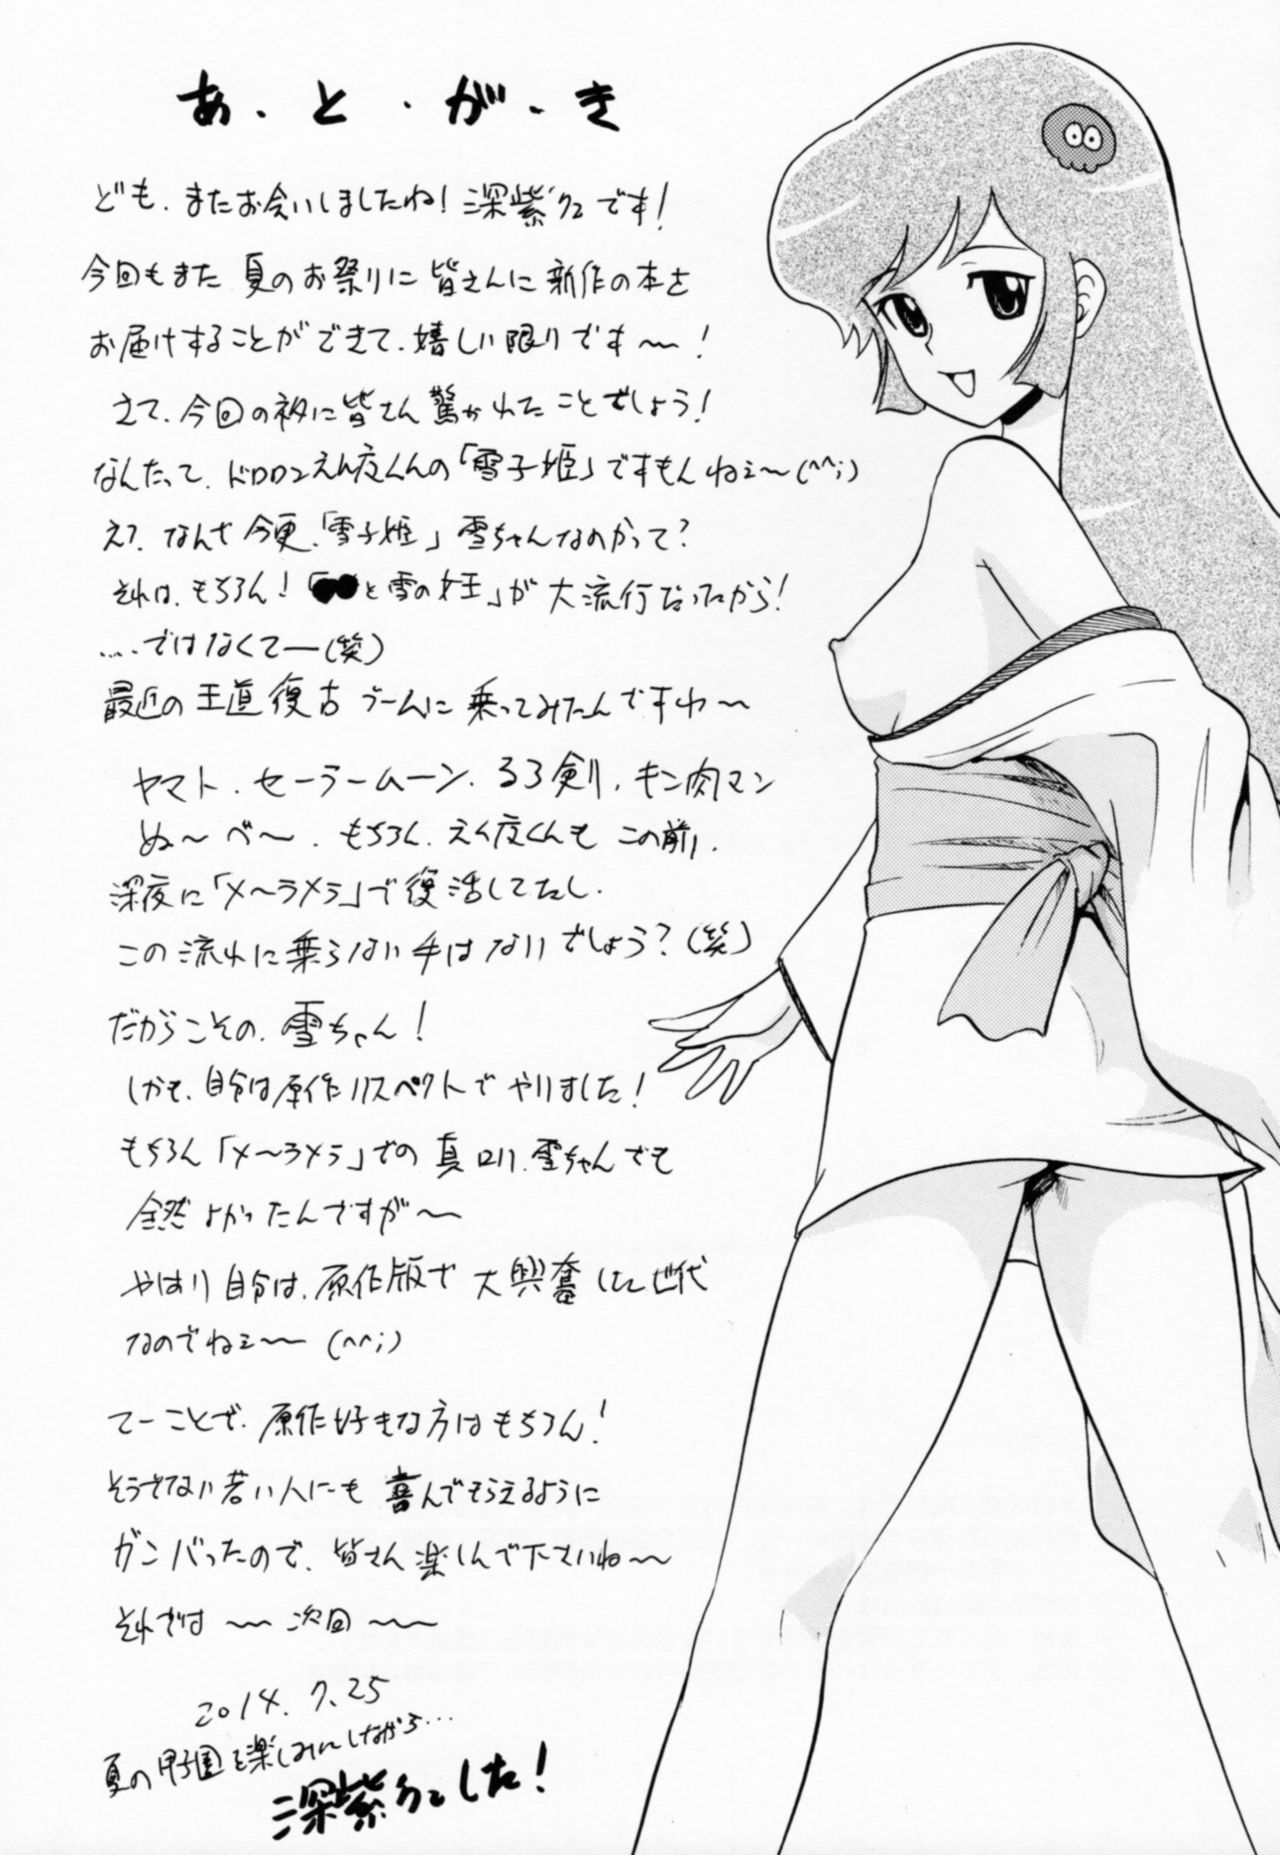 あ・と・が・き
ども、またお会いしましたね!深紫です!
今回もまた夏のお祭りに皆さんに新作の本を
お届けすることができて、嬉しい限りです〜!
さて、今回のネタに皆さん驚かれたことでしょう!
なんたって、ドロロンえん魔くんの「雪子姫」ですもんねェ〜(^^;)
え?なんで今更、「雪子姫」雪ちゃんなのかって?
それは、もちろん!「と雪の女王」が大流行だったから!
....ではなくてー(笑)
最近の王道復古ブームに乗ってみたんですわ〜
ヤマト、セーラームーン、るろ剣、キン肉マン
ぬ〜べ〜、もちろん、えん魔くんもこの前、
深夜に「メ〜ラメラ」で復活してたし、
この流れに乗らない手はないでしょう?(笑)
だからこその、雪ちゃん!
しかも、自分は原作リスペクトでやりました!
もちろん「メ〜ラメラ」での真ロリ、雪ちゃんでも
全然よかったんですが〜
やはり自分は、原作版で大興奮した世代
なのでねェ〜〜(^^;)
てーことで、原作好きな方はもちろん!
そうさない若い人にも喜んでもらえるように
ガンバったので、皆さん楽しんで下さいね〜〜
それでは〜〜次回〜〜
2014.7.25
夏の甲子園を楽しみにしながら...
深紫でした!